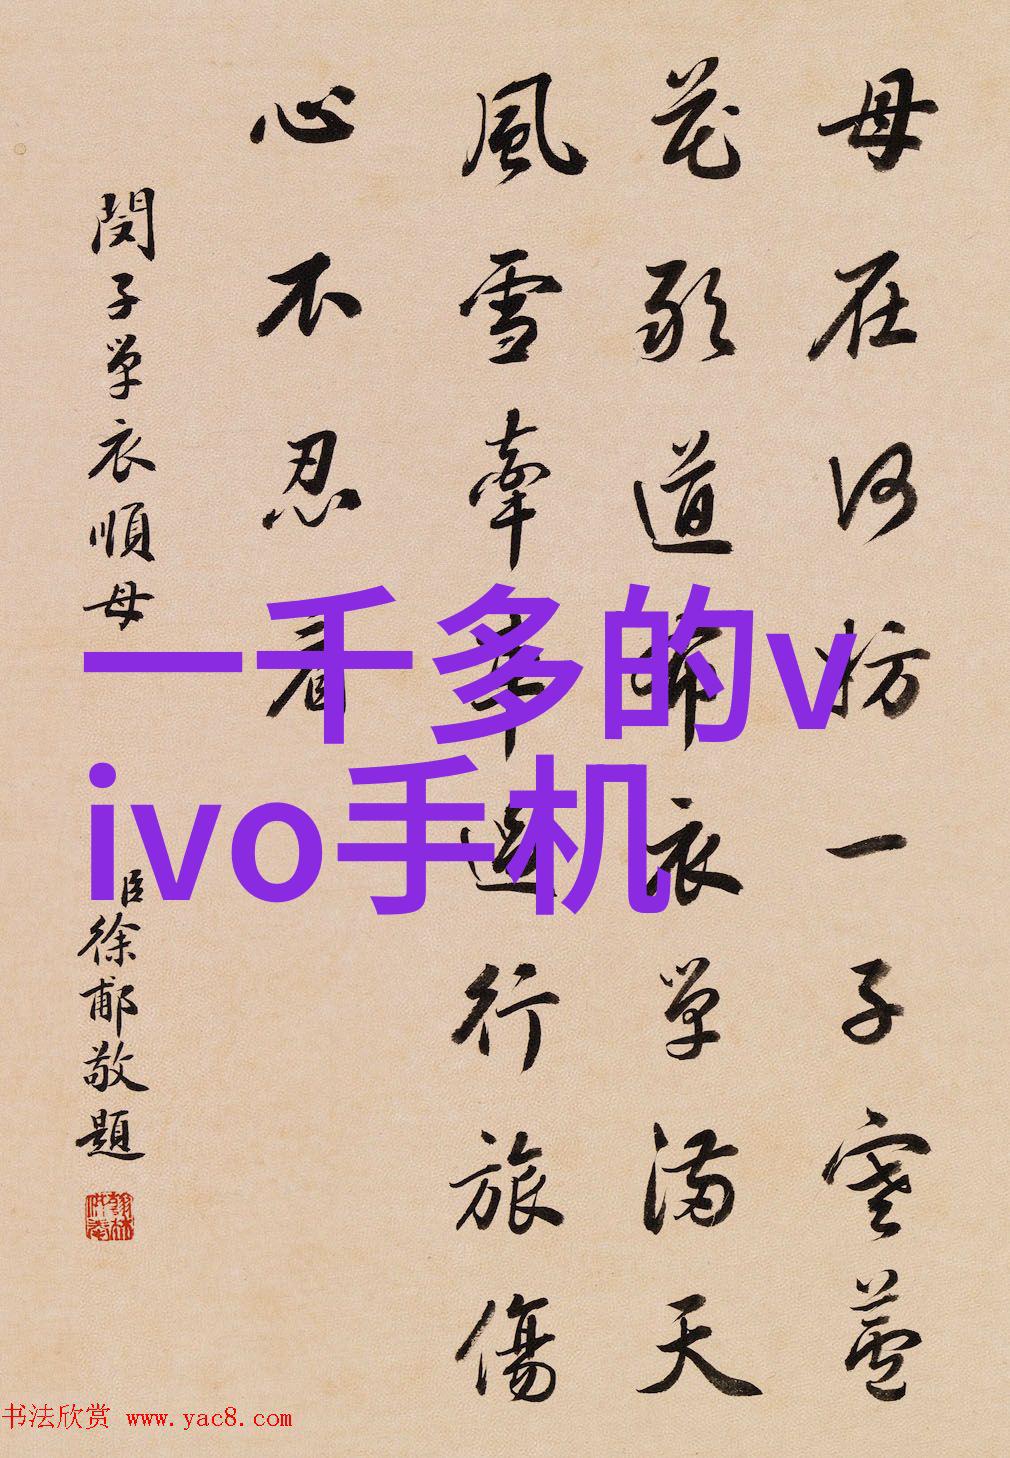 母在何妨一子寒蘆
花敢道布衣單滿天
風雪牽車過行旅傷
心不忍看
閔子單衣順母
臣徐郙敬題
翰林供奉
一千多的v
ivo手机
书法欣赏 www.yac8.com